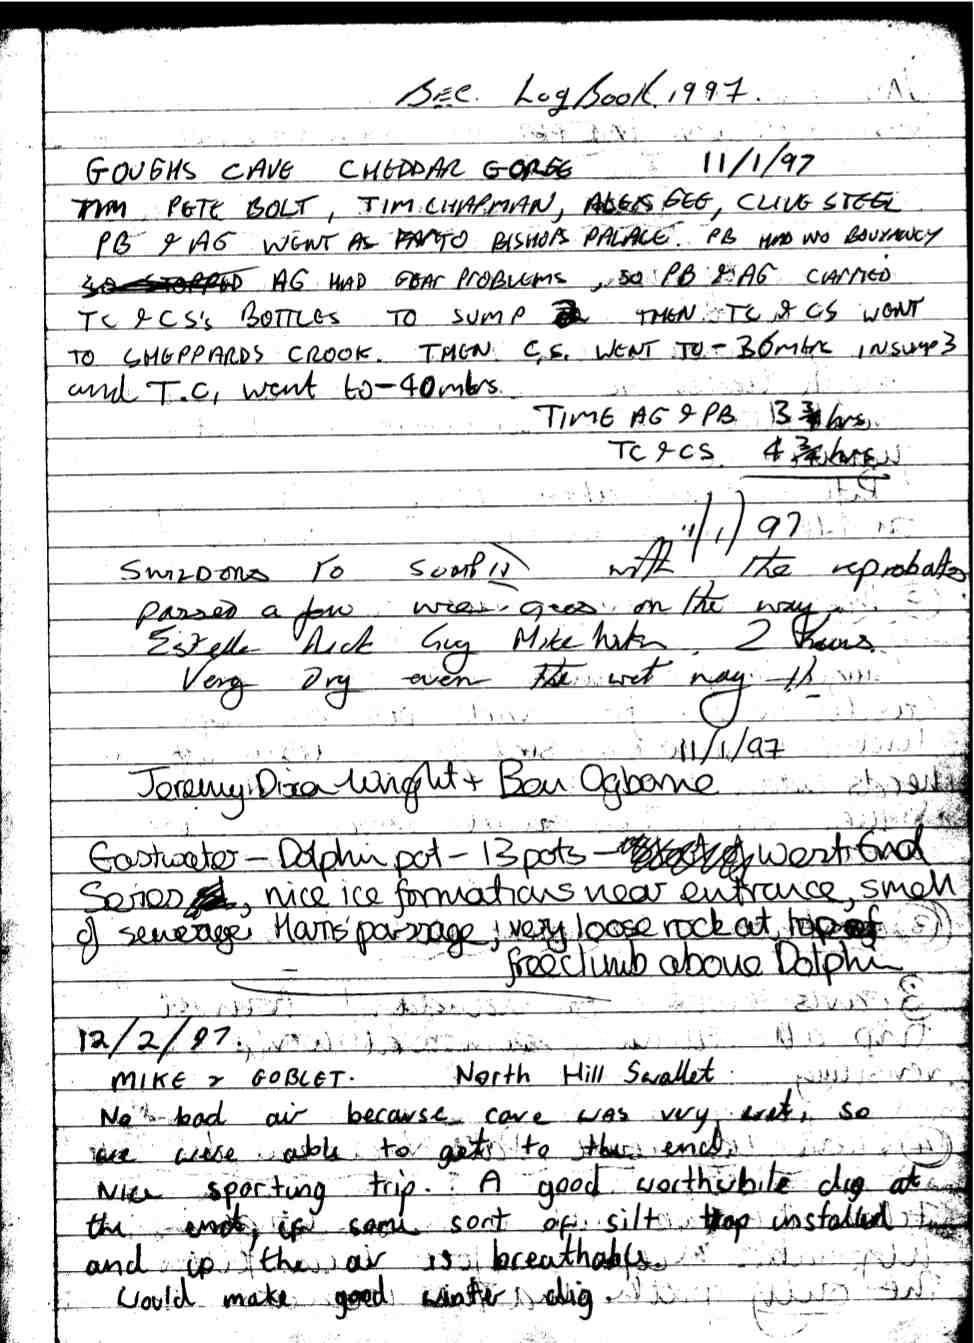 BEC. LogBook 1997.
GOUGHS CAVE CHEDDAR GORGE 11/1/97
TIM PETE BOLT, TIM CHAPMAN, ALEX GEE, CLIVE STEEL
PB & AG WENT AS FAR TO BISHOPS PALACE. PB HAD NO BOUYANCY
SO STOPPED AG HAD GEAR PROBLEMS, SO PB & AG CARRIED
TC & CS's BOTTLES TO SUMP 2 THEN TC & CS WENT
TO SHEPPARDS CROOK. THEN C.S. WENT TO - 36mtrs IN SUMP 3
and T.C. went to - 40mtrs.
TIME AG & PB 3 3/4 hrs.
TC & CS. 4 3/4 hrs
11/1/97
SWILDONS To SUMP II with the reprobates
passed a few on the way.
Estelle Rick Guy Mike 2 hours.
Very Dry even the wet way
11/1/97
Jeremy Dixon-Wright + Ben Ogborne
Eastwater - Dolphin pot - 13 pots - West End
Series, nice ice formations near entrance, smell
of sewerage Harris' passage; very loose rock at top of
freeclimb above Dolphin
12/2/97.
MIKE & GOBLET. North Hill Swallet
No bad air because cave was very wet, so
we were able to get to the end.
Nice sporting trip. A good worthwhile dig at
the end, if some sort of silt trap installed
and if the air is breathable
Would make good winter dig.